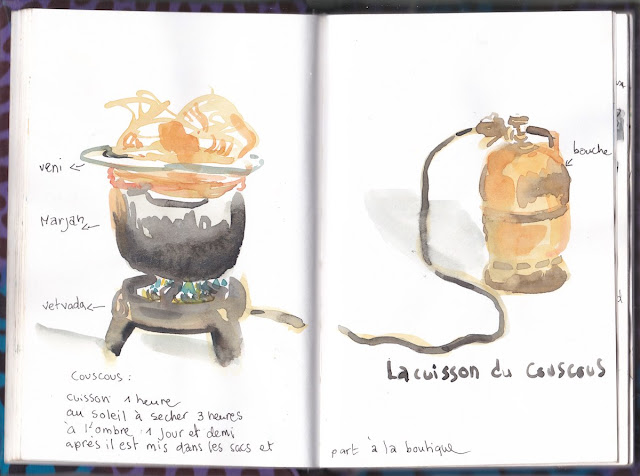 veni
Marjan
vetvada
bouche
La cuisson du couscous
couscous :
cuisson 1 heure
au soleil à sécher 3 heures
à l'ombre 1 jour et demi
après il est mis dans les sacs et
part à la boutique